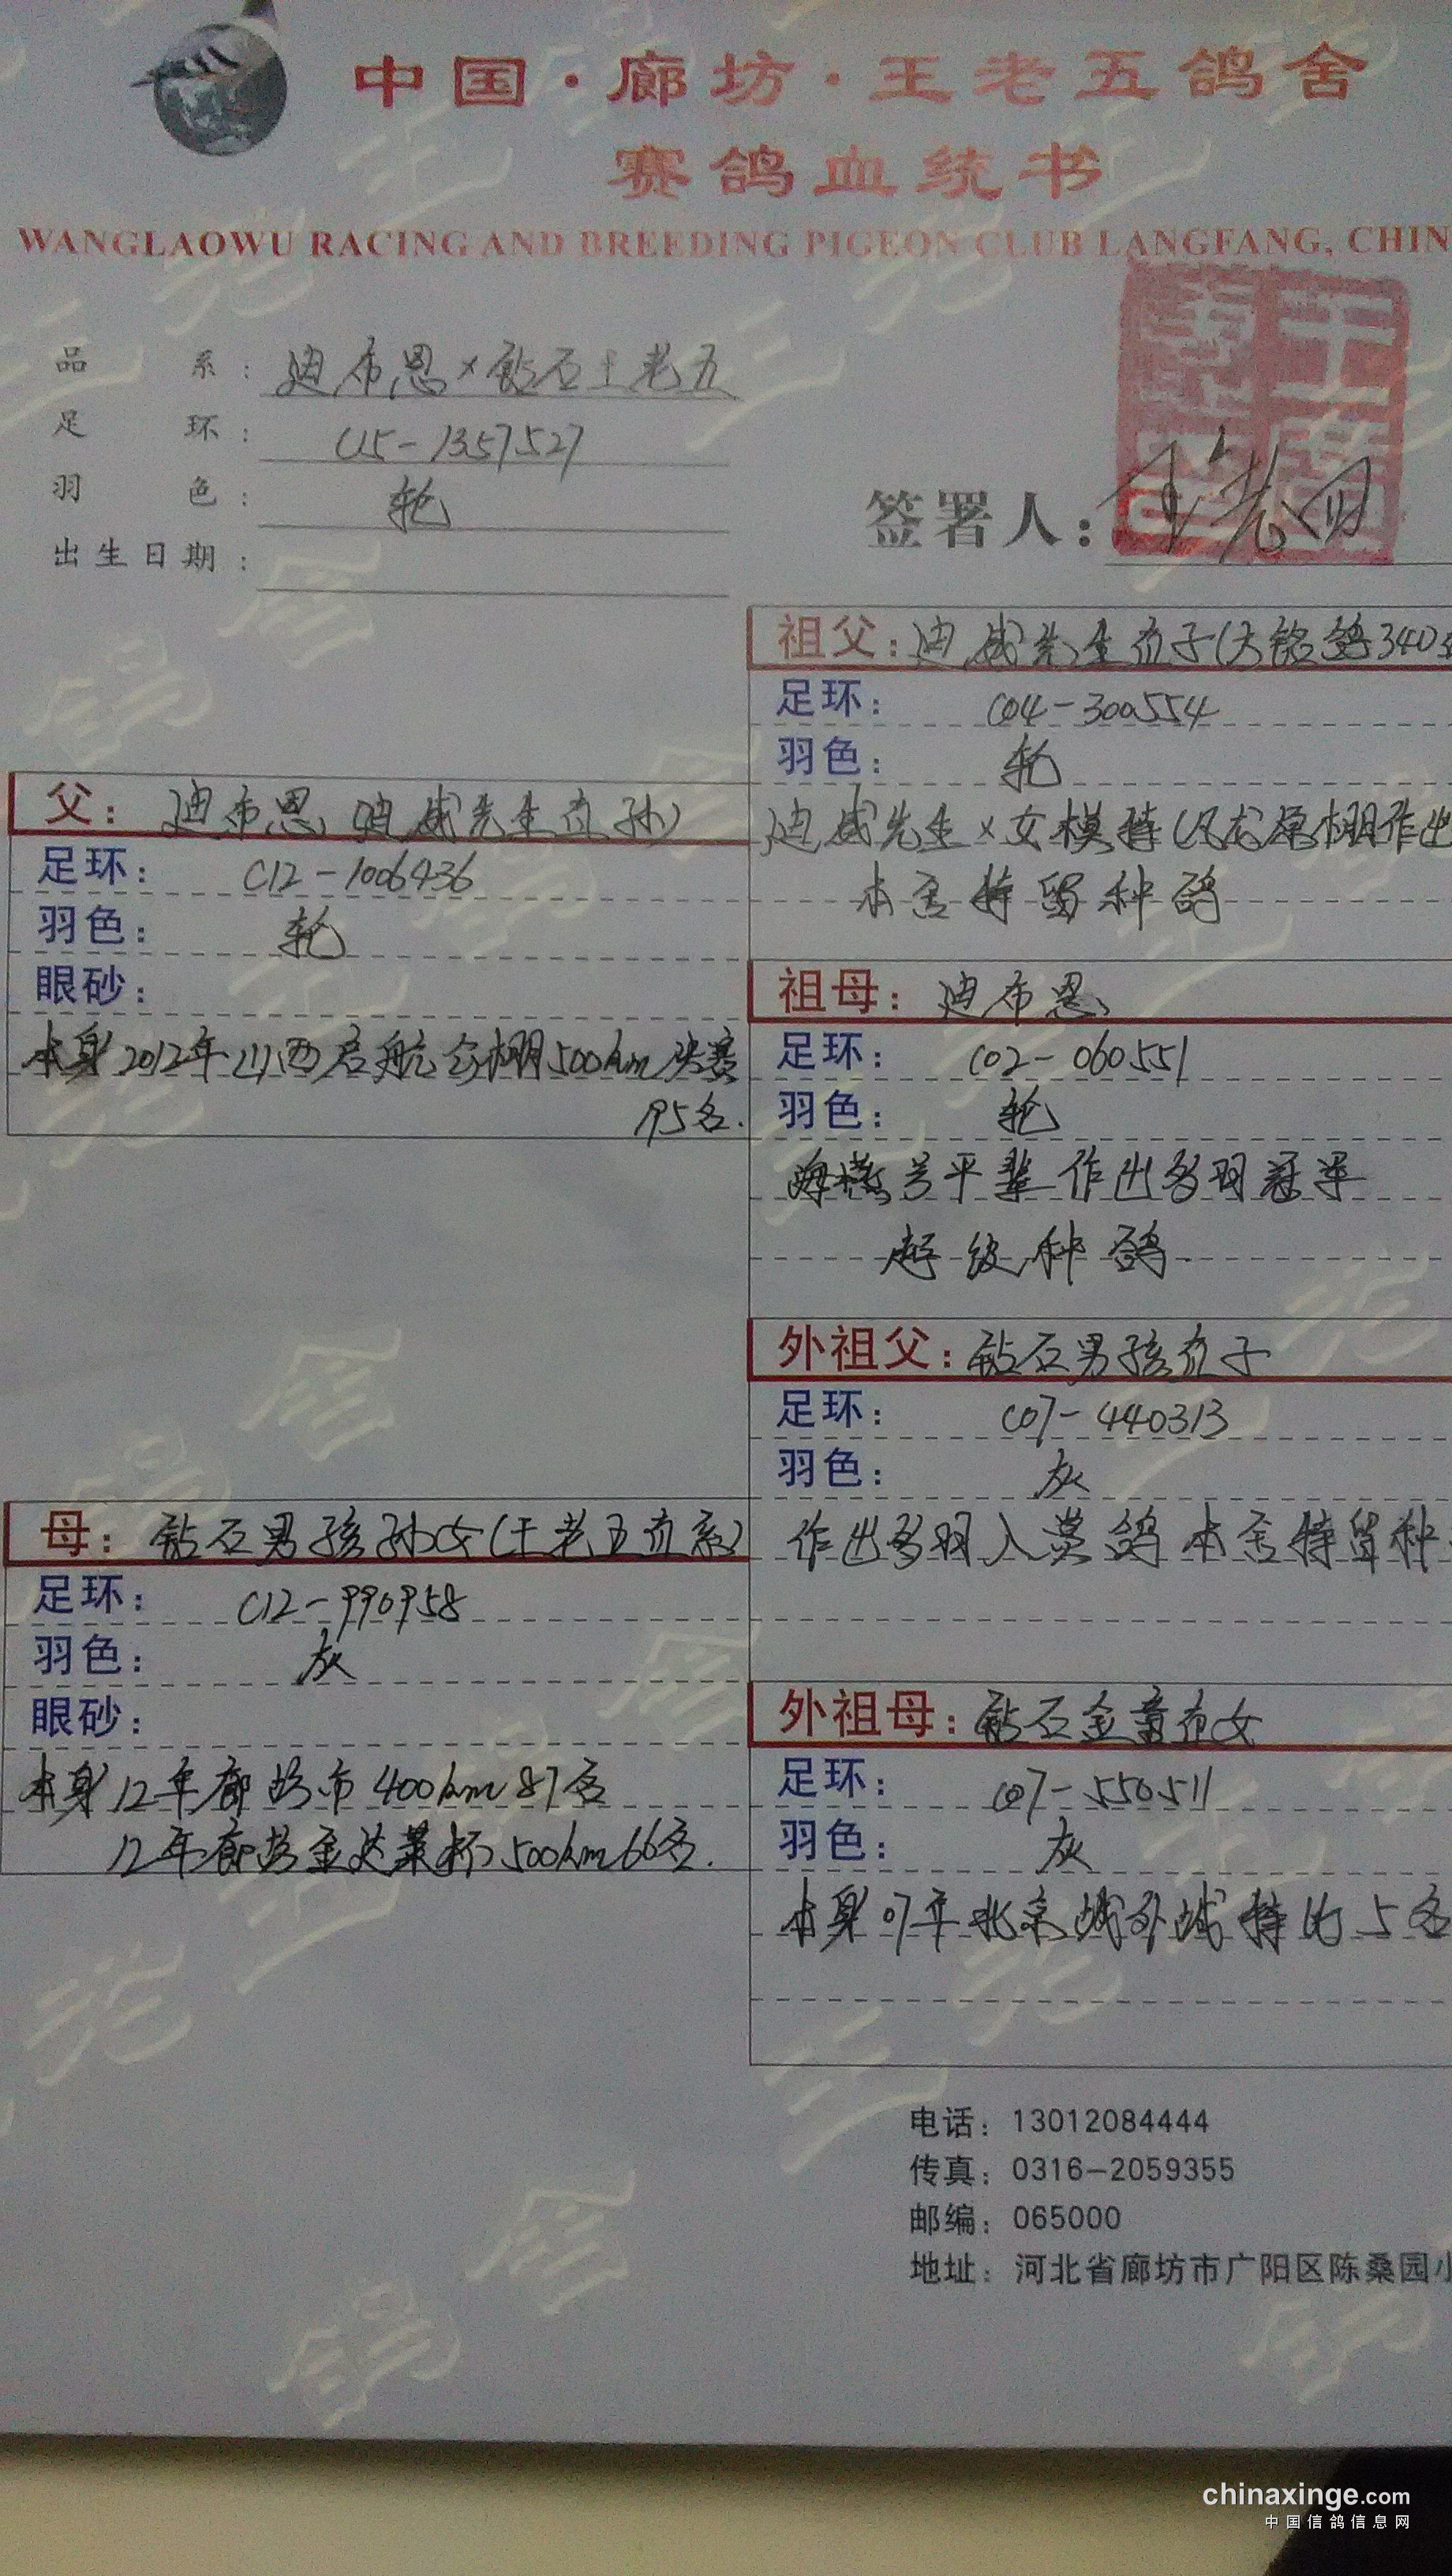 中国·廊坊·王老五鸽舍
赛鸽血统书
WANGLAOWU RACING AND BREEDING PIGEON CLUB LANGFANG, CHIN
品系：迪布恩×钻石王老五
足环：C15-1357527
羽色：轮
出生日期：
签署人：
父：迪布恩（迪威先生直孙）
足环：C12-1006436
羽色：轮
眼砂：
本身2012年山西启航公棚500km决赛
195名.
母：钻石男孩孙女（王老五直系）
足环：C12-990958
羽色：灰
眼砂：
本身12年廊坊市400km87名
12年廊坊金达莱杯500km66名.
祖父：迪威先生直子（大铭鸽340
足环：C04-300554
羽色：轮
迪威先生×女模特（原棚作出
本舍特留种鸽
祖母：迪布恩
足环：C02-060551
羽色：轮
平辈作出多羽冠军
超级种鸽.
外祖父：钻石男孩直子
足环：C07-440313
羽色：灰
作出多羽入赏鸽本舍特留种
外祖母：钻石金童直女
足环：C07-550511
羽色：灰
本身07年北京城外城特比5名
电话：13012084444
传真：0316-2059355
邮编：065000
地址：河北省廊坊市广阳区陈桑园小
chinaxinge.com
中国信鸽信息网